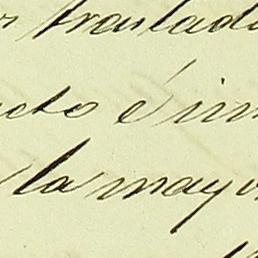 traslad
cto é in
la mayo